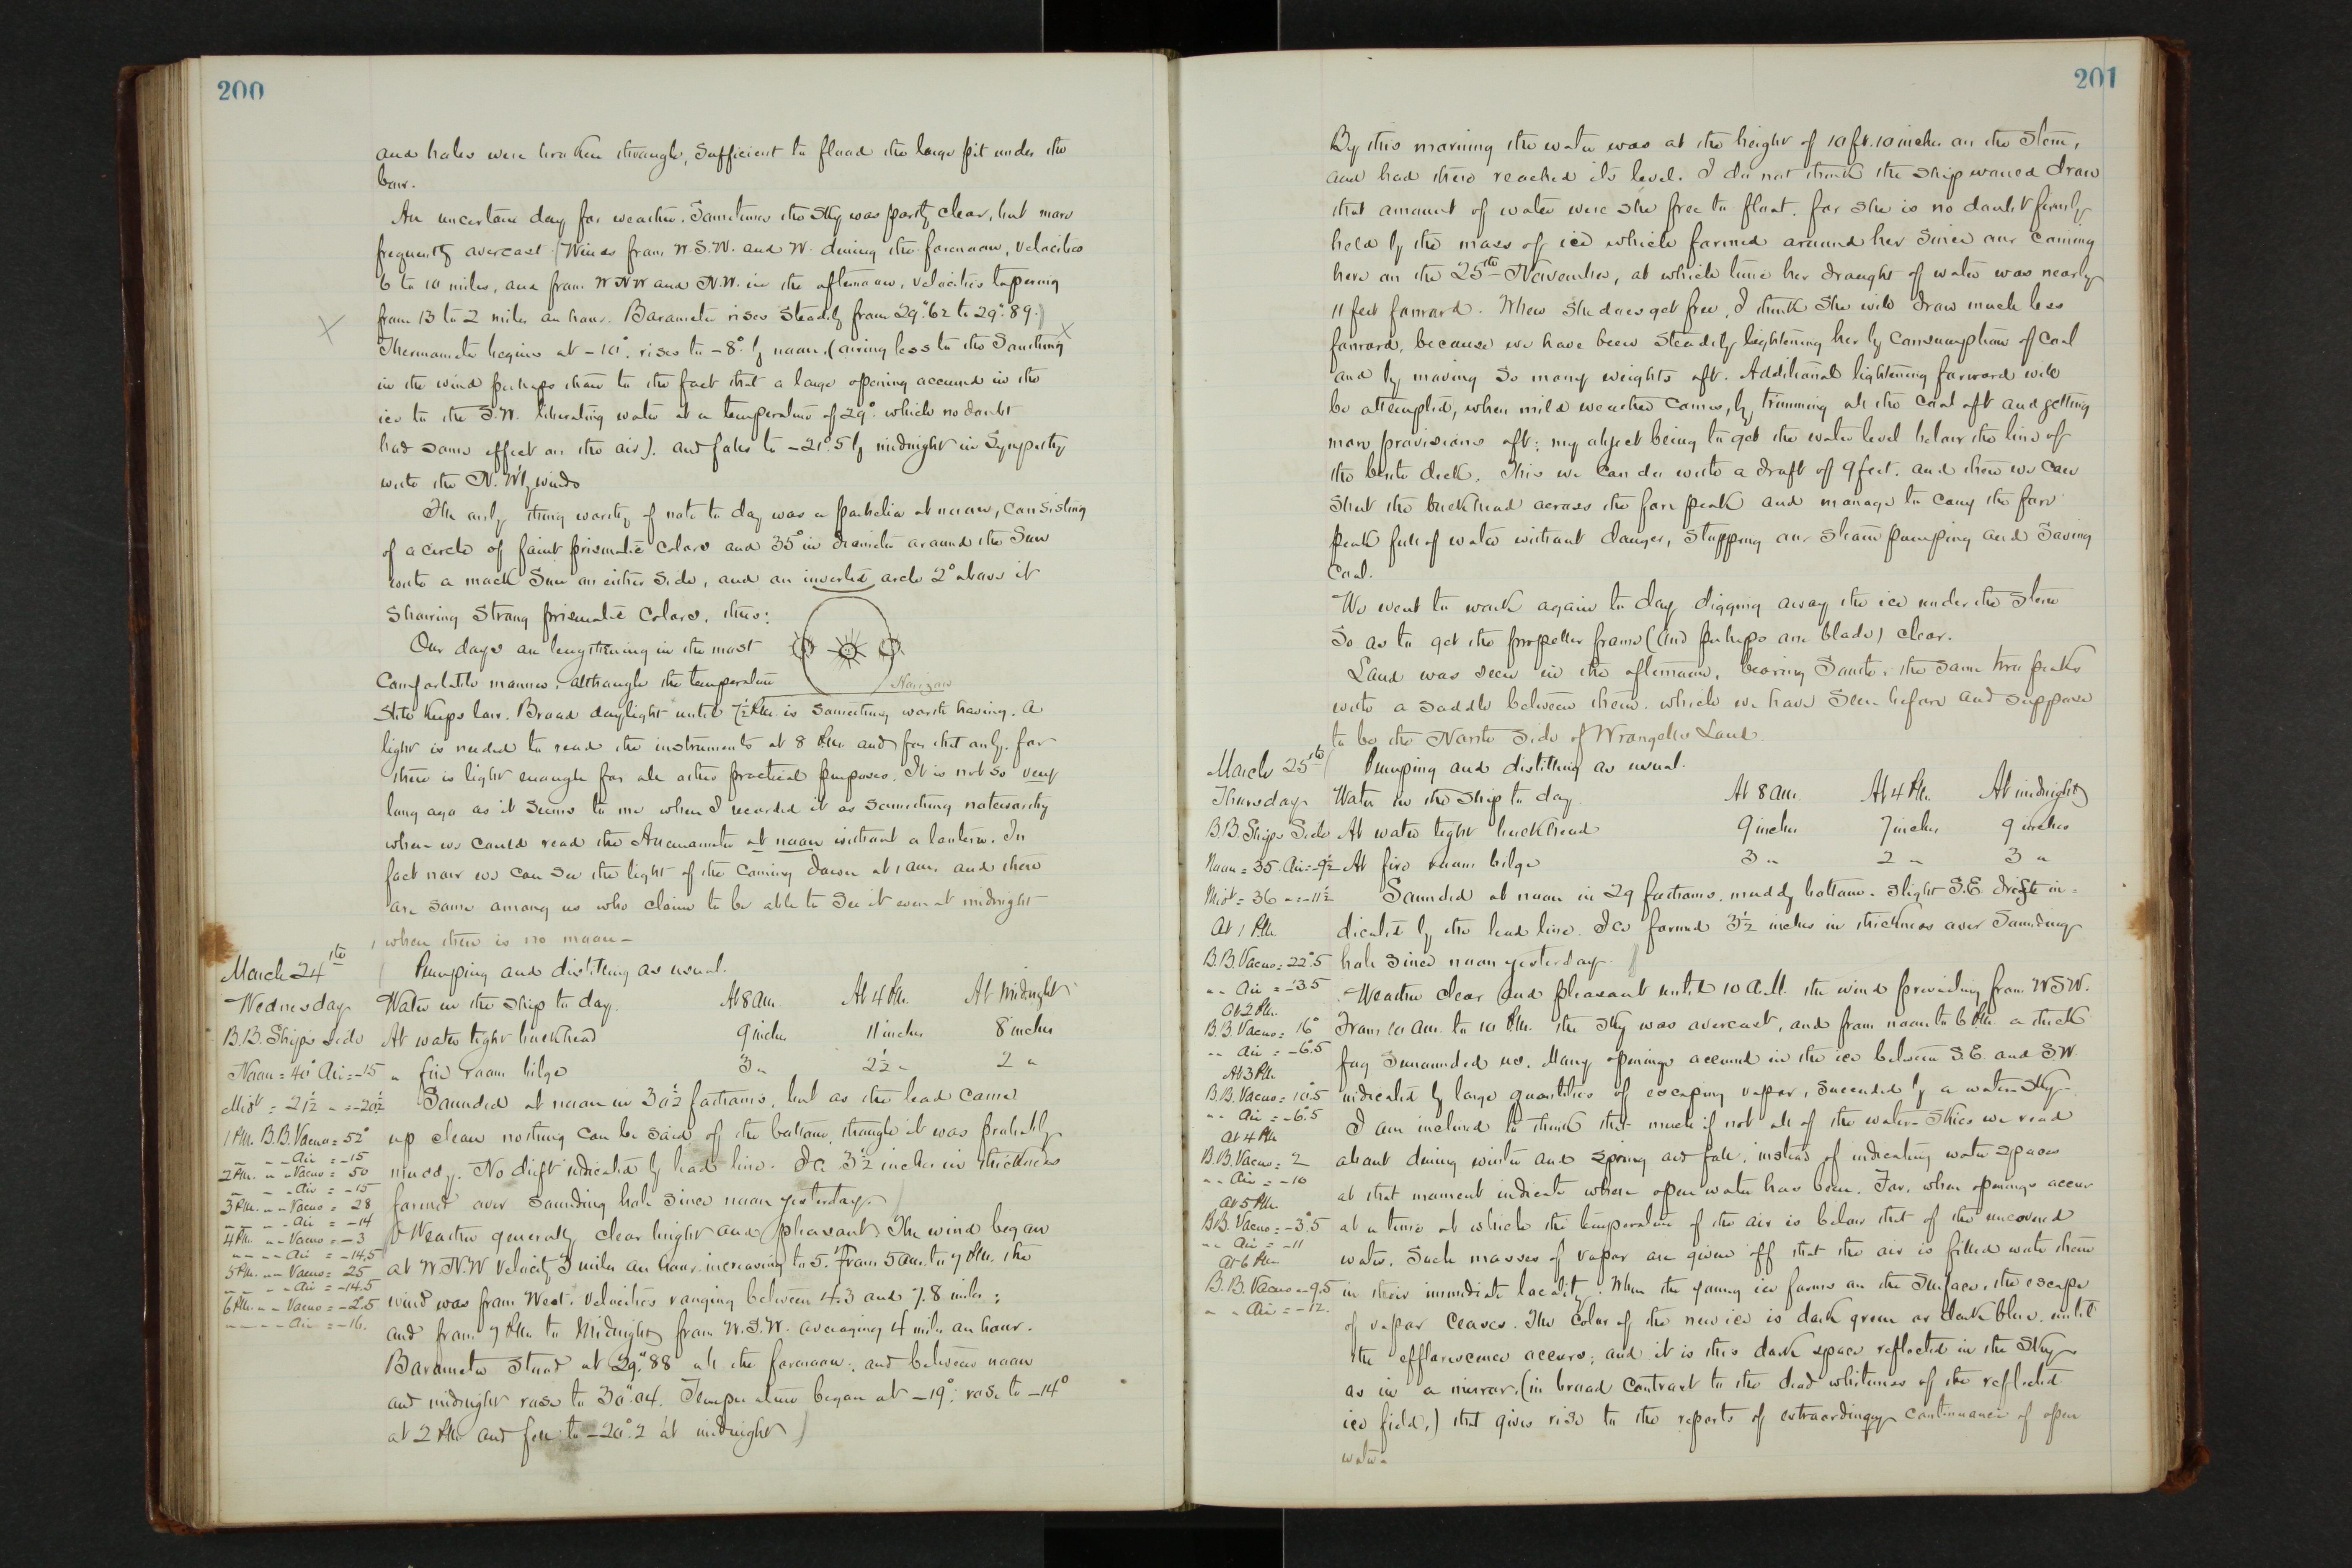 200
and holes were broken through, sufficient to flood the large pit under the
bow.
An uncertain day for weather. Sometimes the sky was partly clear, but more
frequently overcast. (Winds from W.S.W. and W. during the forenoon, velocities
6 to 10 miles, and from W.N.W and N.W. in the afternoon, velocities tapering
from 13 to 2 miles an hour. Barometer rises steadily from 29".62 to 29".89.)
Thermometer begins at -10°. rises to -8° by noon, (owing less to the Southing
in the wind perhaps than to the fact that a large opening occurred in the
ice to the S.W. liberating water at a temperature of 29°. which no doubt
had some effect on the air). and falls to -21°.5 by midnight in Sympathy
with the N.W'ly winds
The only thing worthy of note to day was a parhelia at noon, consisting
of a circle of faint prismatic colors and 35° in diameter around the Sun
with a mock Sun on either side, and an inverted arch 2° above it
showing strong prismatic colors, thus:
Our days are lengthening in the most
Comfortable manner, although the temperature
Horizon
still keeps low. Broad daylight until 7½ P.M. is something worth having. A
light is needed to read the instruments at 8 P.M. and for that only. for
there is light enough for all other practical purposes. It is not so very
long ago as it seems to me when I recorded it as something noteworthy
when we could read the Anemometer at noon without a lantern. In
fact now we can see the light of the coming dawn at 1 am. and there
are some among us who claim to be able to see it even at midnight
when there is no moon-
March 24th
Pumping and distilling as usual.
Wednesday Water in the ship to day. At 8 am. At 4 P.M. At Midnight
B.B. Ships side At water tight bulkhead 9 inches 11 inches 8 inches
Noon = 40° Air = -15 " fire room bilge 3 " 2½ " 2 "
Midt = 21½ " = -20½ Sounded at noon in 30½ fathoms, but as the lead came
1 P.M. B.B. Vacuo = 52° up clean nothing can be said of the bottom, though it was probably
" " Air = -15
2 P.M. " " Vacuo = 50 muddy. No drift indicated by lead line. Ice 3½ inches in thickness
" " Air = -15
3 P.M. " " Vacuo = 28 formed over sounding hole since noon yesterday.
" " Air = -14
4 P.M. " " Vacuo = -3 (Weather generally clear bright and pleasant. The wind began
" " Air = -14.5
5 P.M. " " Vacuo = 25 at W.N.W velocity 3 miles an hour increasing to 5. From 5 am. to 7 P.M. the
" " Air = -14.5
6 P.M. " " Vacuo = -2.5 wind was from West. velocities ranging between 4.3 and 7.8 miles;
" " Air = -16.
and from 7 P.M. to Midnight from W.S.W. averaging 4 miles an hour.
Barometer stood at 29".88 all the forenoon; and between noon
and midnight rose to 30".04. Temperature began at -19°: rose to -14°
at 2 P.M. and fell to -20°.2 at midnight)
201
By this morning the water was at the height of 10 ft. 10 inches on the Stem,
and had thus reached its level. I do not think the ship would draw
that amount of water were she free to float. for she is no doubt firmly
held by the mass of ice which formed around her since our coming
here on the 25th November, at which time her draught of water was nearly
11 feet forward. When she does get free, I think she will draw much less
forward, because we have been steadily lightening her by consumption of coal
and by moving so many weights aft. Additional lightening forward will
be attempted, when mild weather comes, by trimming all the coal aft and getting
more provisions aft: my object being to get the water level below the line of
the berth deck. This we can do with a draft of 9 feet. and then we can
shut the bulkhead across the fore peak and manage to carry the fore
peak full of water without danger, stopping our steam pumping and saving
coal.
We went to work again to day digging away the ice under the Stern
so as to get the propeller frame (and perhaps one blade) clear.
Land was seen in the afternoon, bearing South: the same two peaks
with a saddle between them. which we have seen before and suppose
to be the North side of Wrangells Land.
March 25th Pumping and distilling as usual.
Thursday Water in the ship to day. At 8 am. At 4 P.M. At midnight
B.B. Ships Side At water tight bulkhead 9 inches 7 inches 9 inches
Noon = 35. Air = -9½ At fire room bilge 3 " 2 " 3 "
Midt = 36 " = -11½ Sounded at noon in 29 fathoms. muddy bottom. slight S.E. drift in=
At 1 P.M. dicated by the lead line. Ice formed 3½ inches in thickness over sounding
B.B. Vacuo = 22°.5 hole since noon yesterday.
" " Air = -3.5 Weather clear and pleasant until 10 A.M. the wind prevailing from WSW.
At 2 P.M.
B.B Vacuo = 16° From 10 am. to 10 P.M. the sky was overcast, and from noon to 6 P.M. a thick
" " Air = -6°.5 fog surrounded us. Many openings occurred in the ice between S.E. and S.W.
At 3 P.M.
B.B. Vacuo = 10°.5 indicated by large quantities of escaping vapor, succeeded by a water-sky.
" " Air = -6°.5
At 4 P.M. I am inclined to think that much if not all of the water-skies we read
B.B. Vacuo = 2 about during winter and spring and fall, instead of indicating water spaces
" " Air = -10
At 5 P.M. at that moment indicate where open water has been. For, when openings occur
B.B. Vacuo = -3°.5 at a time at which the temperature of the air is below that of the uncovered
" " Air = -11
At 6 P.M. water, such masses of vapor are given off that the air is filled with them
B.B. Vacuo = -9.5 in their immediate locality. When the young ice forms on the surface, the escape
" " Air = -12.
of vapor ceases. The color of the new ice is dark green or dark blue, until
the efflorescence occurs; and it is this dark space reflected in the sky
as in a mirror, (in broad contrast to the dead whiteness of the reflected
ice field,) that gives rise to the reports of extraordinary continuance of open
water.